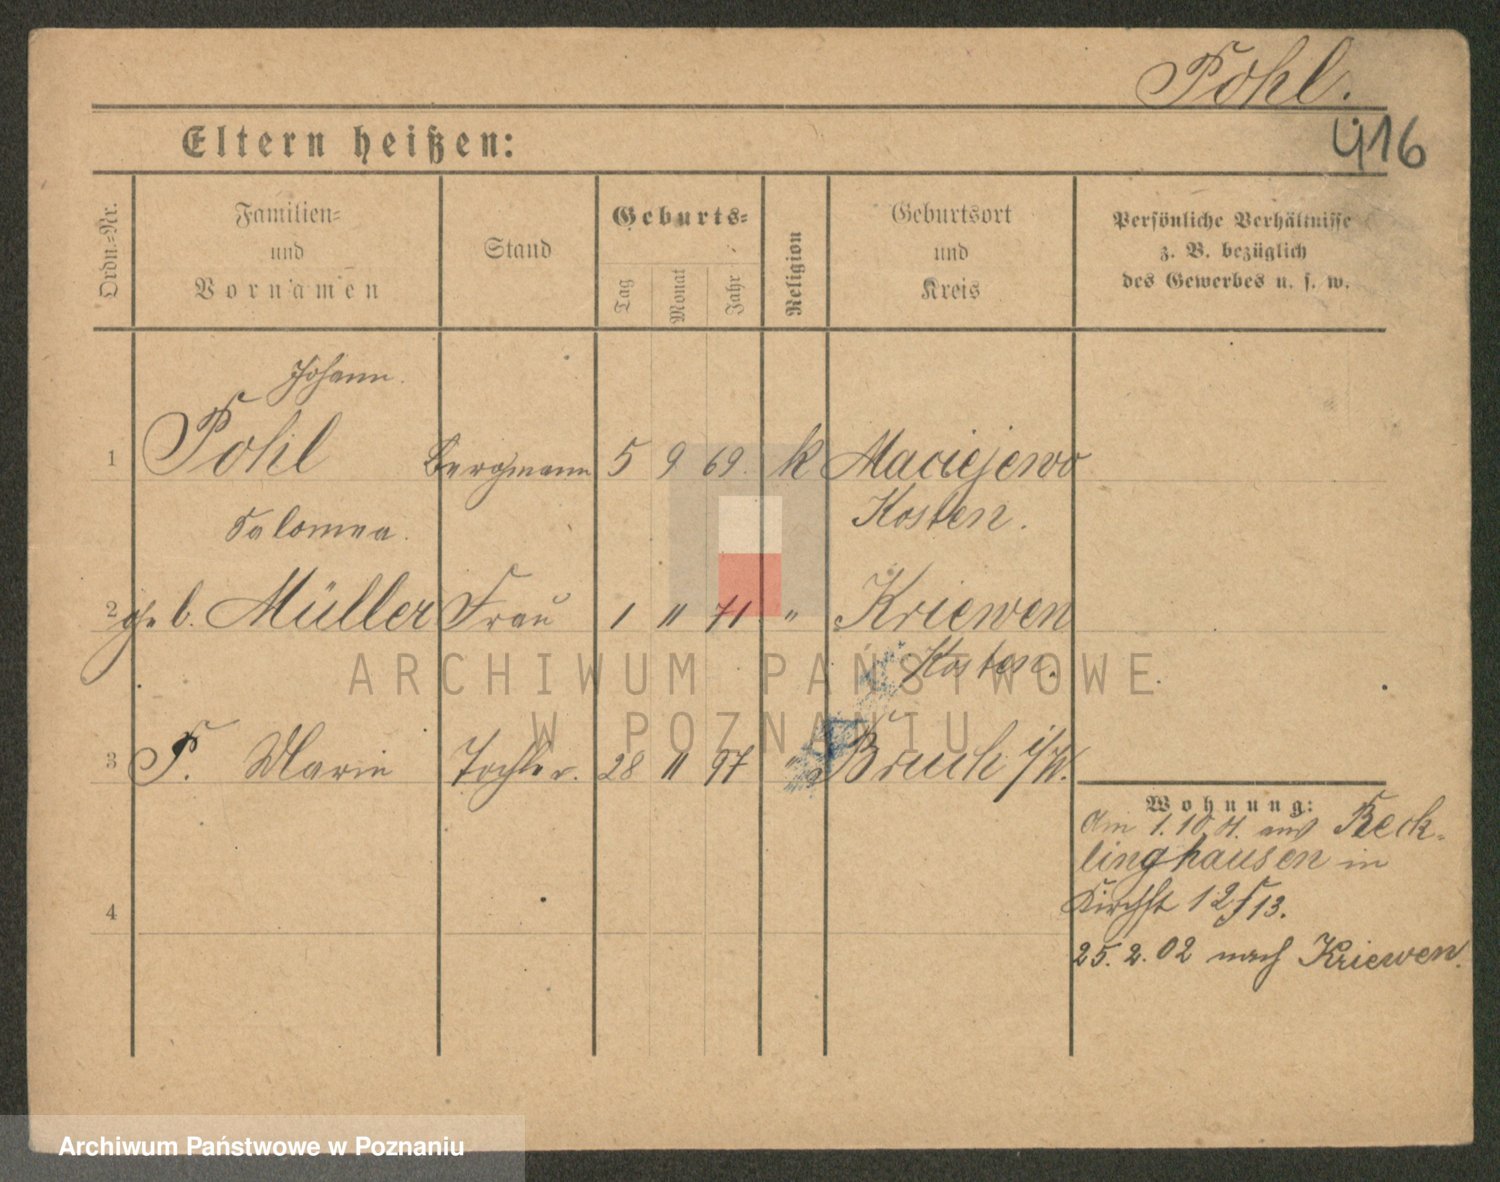 Pohl.
416
Eltern heißen:
Ordn.-Nr.
Familien-
und
Vornamen
Stand
Geburts-
Tag
Monat
Jahr
Religion
Geburtsort
und
Kreis
Persönliche Verhältnisse
z. B. bezüglich
des Gewerbes u. s. w.
Johann.
1 Pohl Bergmann 5 9 69. k Maciejewo
Kosten.
Salomea.
2 geb. Müller Frau 1 11 71 " Kriewen
Kosten.
3 P. Marie Tochter. 28 11 97 " Bruch i/W.
Wohnung:
Am 1.10. aus Reck-
linghausen in
Kirchst 12 13.
4
25.2.02 nach Kriewen.
ARCHIWUM PAŃSTWOWE
W POZNANIU
Archiwum Państwowe w Poznaniu